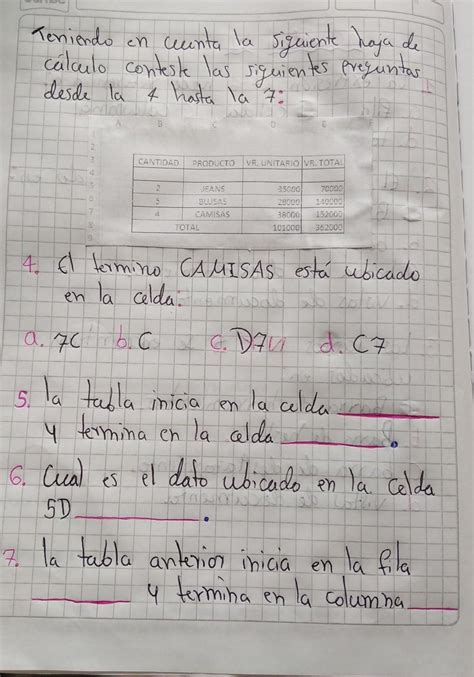 Teniendo en cuenta la siguiente hoja de
calculo conteste las siguientes preguntas
desde la 4 hasta la 7:
A B C D E
2
3 CANTIDAD PRODUCTO VR. UNITARIO VR. TOTAL
4
5 2 JEANS 35000 70000
6 5 BLUSAS 28000 140000
7 4 CAMISAS 38000 152000
8 TOTAL 101000 362000
9
4. El termino CAMISAS está ubicado
en la celda:
a. 7C b. C c. D7 d. C7
5. la tabla inicia en la celda
y termina en la celda .
6. Cual es el dato ubicado en la celda
5D .
7. la tabla anterior inicia en la fila
y termina en la columna